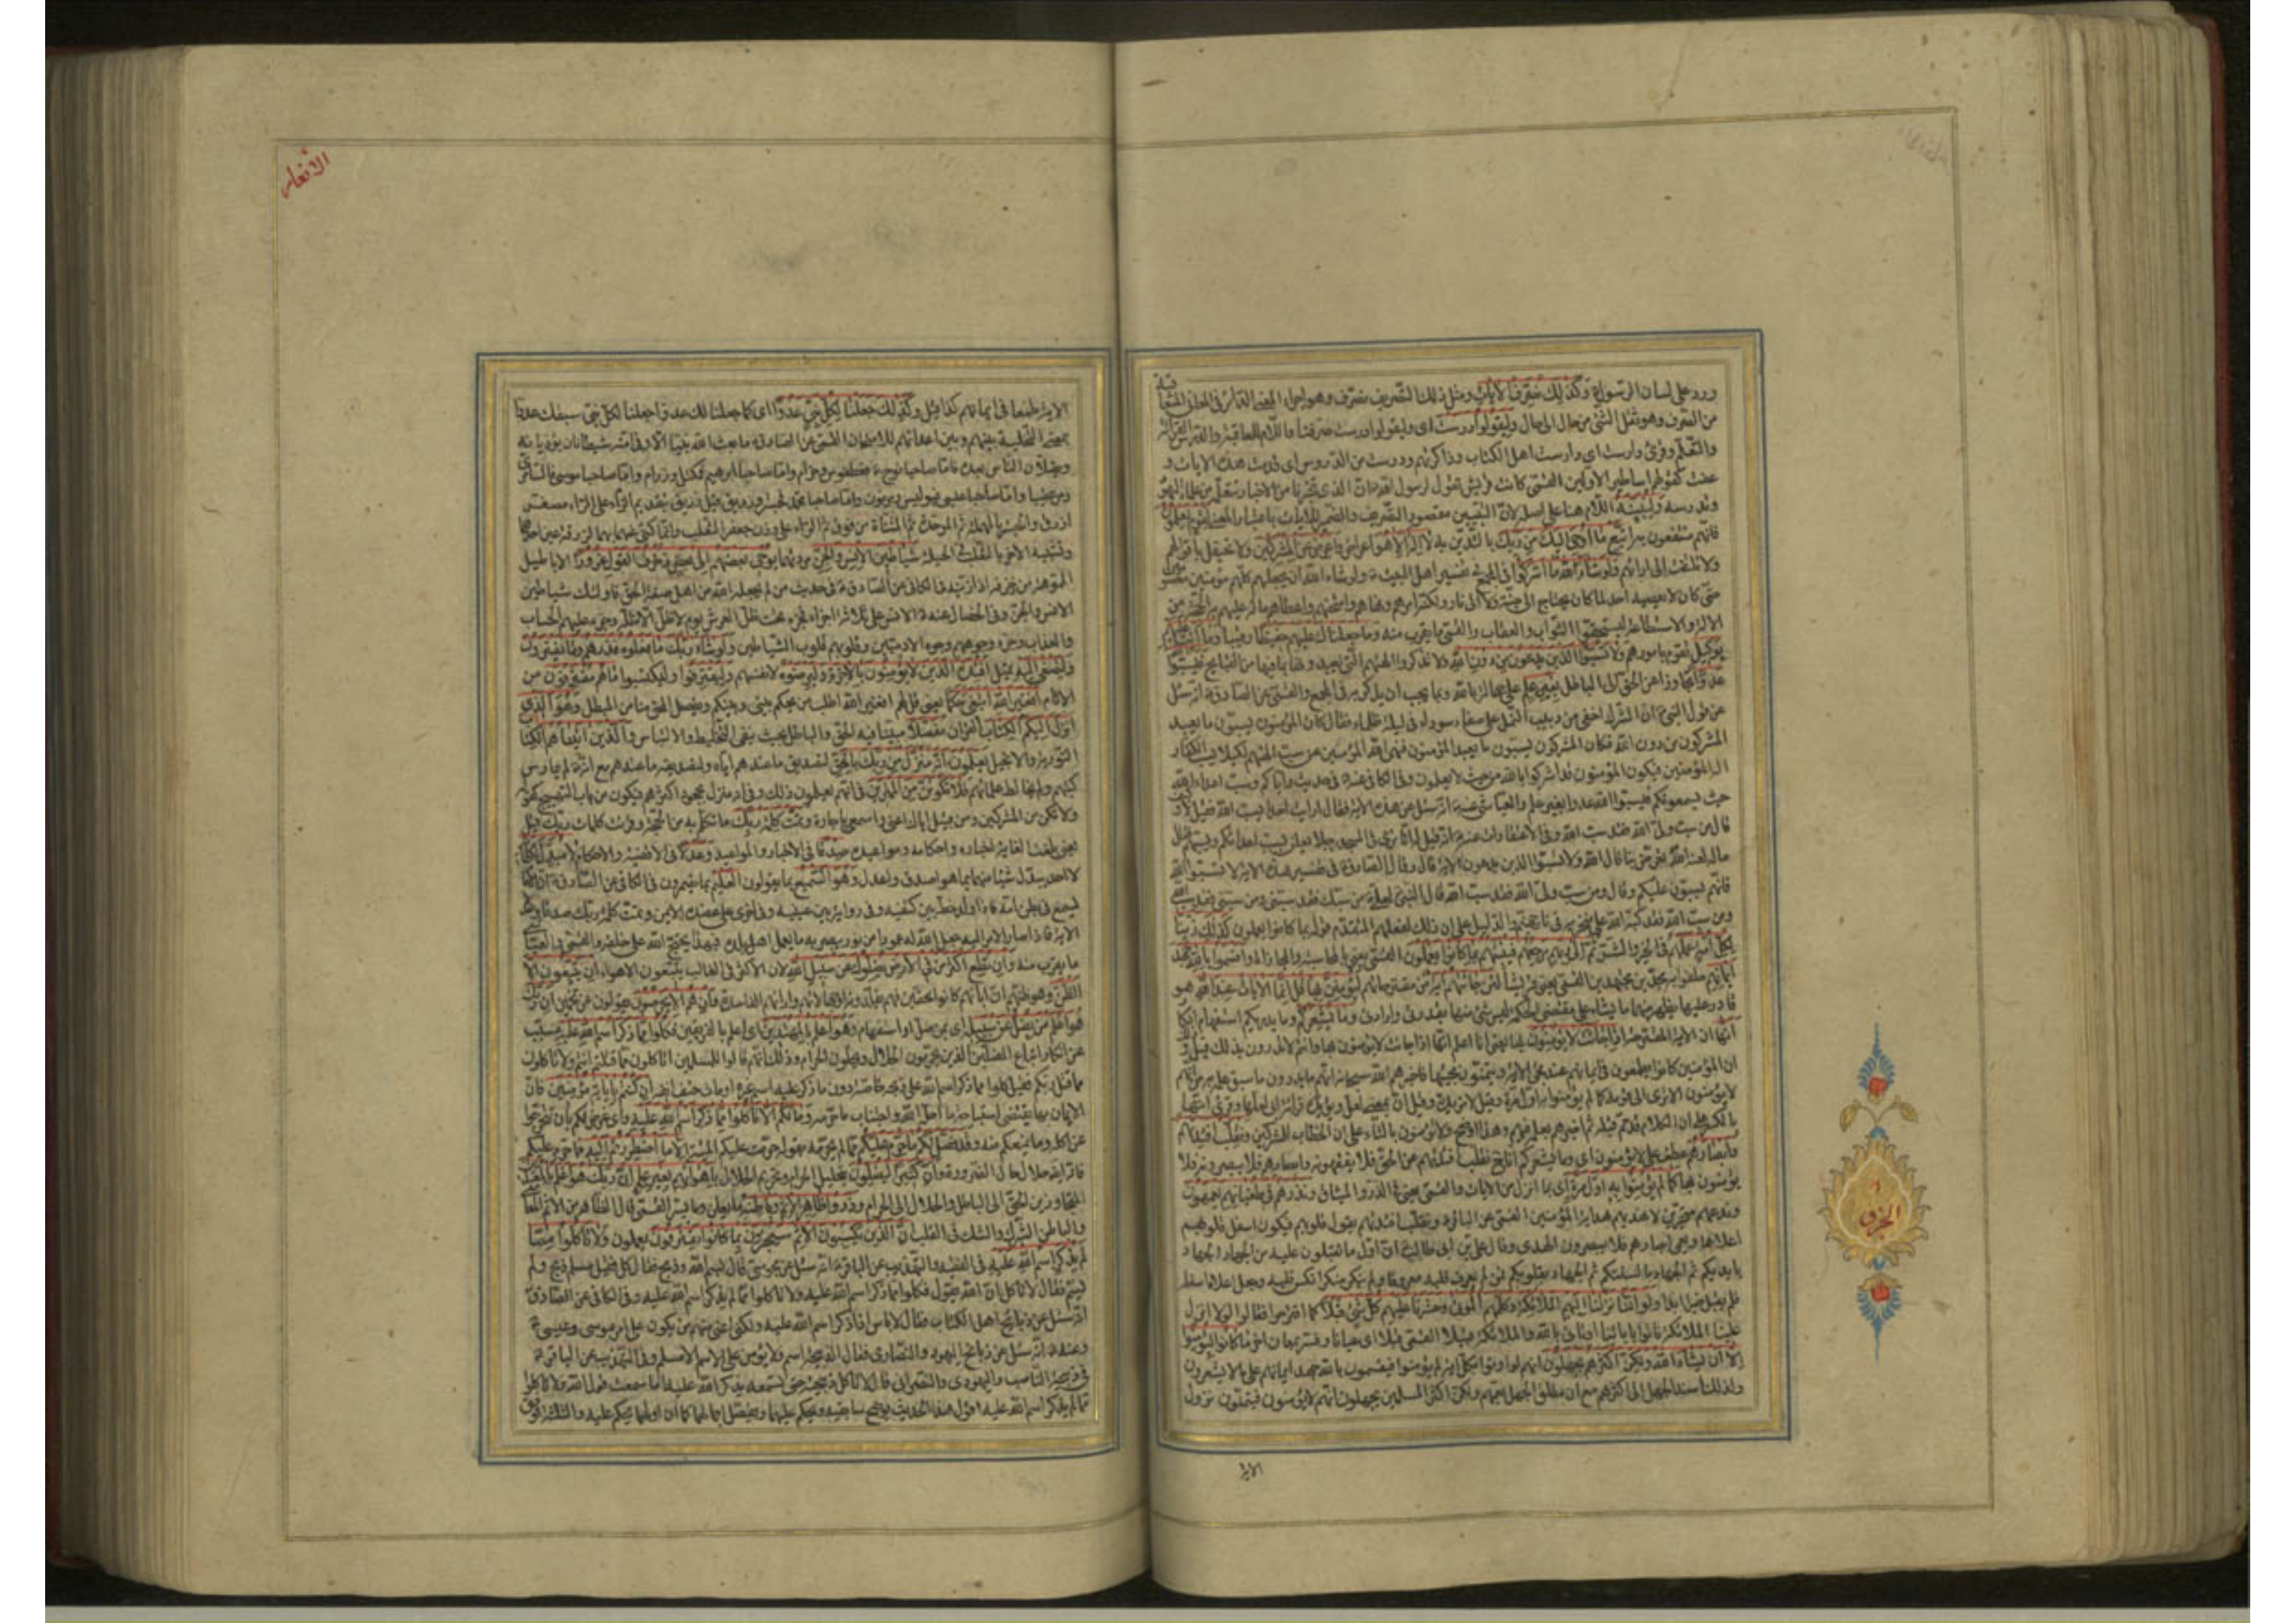 ورد على لسان الرسول وكذلك نصرف الآيات ومثل ذلك التصريف نصرف وهو اجراء المعنى الدائر في المعانى المتعاقبة
من الصرف وهو نقل الشئ من حال الى حال وليقولوا درست اى وليقولوا درست صرفنا واللام للعاقبة والدرس القراءة
والتعلم وقرئ دارست اى دارست اهل الكتاب وذاكرتهم ودرست من الدروس اى قدمت هذه الآيات و
عفت كقولهم اساطير الاولين القمى كانت قريش تقول لرسول الله ان الذى تخبرنا من الاخبار تتعلمه من علماء اليهود
وتدرسه ولنبينه اللام هنا على اصله لان التبيين مقصود التصريف والضمير للآيات باعتبار المعنى لقوم يعلمون
فانهم منتفعون به اتبع ما اوحى اليك من ربك بالتدين به لا اله الا هو اعرض عن المشركين ولا تحتفل باقوالهم
ولا تلتفت الى ارائهم ولو شاء الله ما اشركوا في المجمع في تفسير اهل البيت ولو شاء الله ان يجعلهم كلهم مؤمنين معصومين
حتى كان لا يعصيه احد لما كان يحتاج الى جنة ولا الى نار ولكنه امرهم ونهاهم وامتحنهم واعطاهم ما له عليهم به الحجة من
الآلة والاستطاعة ليستحقوا الثواب والعقاب والقمى ما يقرب منه وما جعلناك عليهم حفيظا رقيبا وما انت عليهم
بوكيل تقوم بامورهم ولا تسبوا الذين يدعون من دون الله ولا تذكروا آلهتهم التى يعبدونها بما فيها من القبائح فيسبوا
عدوا تجاوزا عن الحق الى الباطل بغير علم على جهالة بالله وبما يجب ان يذكر به في المجمع والقمى عن الصادق انه سئل
عن قول النبى ان الشرك اخفى من دبيب النمل على صفاة سوداء في ليلة ظلماء فقال كان المؤمنون يسبون ما يعبد
المشركون من دون الله فكان المشركون يسبون ما يعبد المؤمنون فنهى الله المؤمنين عن سب آلهتهم لكيلا يسب الكفار
اله المؤمنين فيكون المؤمنون قد اشركوا بالله من حيث لا يعلمون وفي الكافى عنه في حديث واياكم وسب اعداء الله
حيث يسمعونكم فيسبوا الله عدوا بغير علم والعياشى عنه انه سئل عن هذه الآية فقال ارايت احدا يسب الله فقيل لا وكيف
قال من سب ولى الله فقد سب الله وفي الاعتقادات عنه انه قيل له انا نرى في المسجد رجلا يعلن بسب اعدائكم ويسميهم فقال
ما له لعنه الله يعرض بنا قال الله ولا تسبوا الذين يدعون الآية قال وقال الصادق في تفسير هذه الآية لا تسبوهم
فانهم يسبون عليكم وقال ومن سب ولى الله فقد سب الله قال النبى لعلى من سبك فقد سبنى ومن سبنى فقد سب الله
ومن سب الله فقد كبه الله على منخريه في نار جهنم كذلك زينا
لكل امة عملهم في الخير والشر ثم الى ربهم مرجعهم فينبئهم بما كانوا يعملون بالمحاسبة والمجازاة واقسموا بالله جهد
ايمانهم لئن جاءتهم آية من مقترحاتهم ليؤمنن بها قل انما الآيات عند الله هو
قادر عليها يظهر منها ما يشاء على مقتضى الحكمة ليس شئ منها بقدرتى وارادتى وما يشعركم وما يدريكم استفهام انكار
انها ان الآية المقترحة اذا جاءت لا يؤمنون بها يعنى انا اعلم انها اذا جاءت لا يؤمنون بها وانتم لا تدرون بذلك قيل
ان المؤمنين كانوا يطمعون في ايمانهم عند مجئ الآية ويتمنون مجيئها فاخبرهم الله سبحانه انهم ما يدرون ما سبق علمه به من انهم
لا يؤمنون الا ترى الى قوله كما لم يؤمنوا به اول مرة وقيل لا مزيدة وقيل ان بمعنى لعل ويؤيده قراءة ابى لعلها وقرئ انها
بالكسر على ان الكلام قد تم قبله ثم اخبرهم بعلمه فيهم وقرئ لا تؤمنون بالتاء على ان الخطاب للمشركين ونقلب افئدتهم
وابصارهم عطف على لا يؤمنون اى وما يشعركم انا نقلب افئدتهم عن الحق فلا يفقهونه وابصارهم فلا يبصرونه فلا
يؤمنون بها كما لم يؤمنوا به اول مرة اى بما انزل من الآيات والقمى يعنى في الذر والميثاق ونذرهم في طغيانهم يعمهون
وندعهم متحيرين لا نهديهم هداية المؤمنين القمى عن الباقر ونقلب افئدتهم يقول قلوبهم فيكون اسفل قلوبهم
اعلاها ونعمى ابصارهم فلا يبصرون الهدى وقال على بن ابى طالب ان اول ما تقلبون عليه من الجهاد الجهاد
بايديكم ثم الجهاد بالسنتكم ثم الجهاد بقلوبكم فمن لم يعرف قلبه معروفا ولم ينكر منكرا نكس قلبه وجعل اعلاه اسفله
فلم يقبل خيرا ابدا ولو اننا نزلنا اليهم الملائكة وكلمهم الموتى وحشرنا عليهم كل شئ قبلا كما اقترحوا فقالوا لولا انزل
علينا الملائكة فاتوا بآبائنا او تاتى بالله والملائكة قبيلا القمى قبلا اى عيانا ما كانوا ليؤمنوا
الا ان يشاء الله ولكن اكثرهم يجهلون انهم لو اوتوا بكل آية لم يؤمنوا فيقسمون بالله جهد ايمانهم على ما لا يشعرون
ولذلك اسند الجهل الى اكثرهم مع ان مطلق الجهل يعمهم ولكن اكثر المسلمين يجهلون انهم لا يؤمنون فيتمنون نزول
الآية
الجزؤ
الانعام
الآية طمعا في ايمانهم كذا قيل وكذلك جعلنا لكل نبى عدوا اى كما جعلنا لك عدوا جعلنا لكل نبى سبقك عدوا
بمعنى التخلية بينهم وبين اعدائهم للامتحان القمى عن الصادق ما بعث الله نبيا الا وفي امته شيطانان يؤذيانه
ويضلان الناس بعده فاما صاحبا نوح وخزام واما صاحبا ابراهيم فمكثل ورزام واما صاحبا موسى فالسامرى
ومرعتيبا واما صاحبا عيسى واما صاحبا محمد فحبتر وزريق قيل زريق بتقديم الزاء على الراء مصغر
ازرق وحبتر بالمهملة ثم الموحدة ثم المثناة من فوق ثم الراء على وزن جعفر الثعلب وانما كنى عنهما بهما لزرقة عين احدهما
وتشبيه الآخر بالثعلب في الحيلة شياطين الانس والجن يوحى بعضهم الى بعض زخرف القول غرورا الاباطيل
المموهة في الكافى عن الصادق في حديث من لم يجعله الله من اهل صفة الحق فاولئك شياطين
الانس والجن وفي الخصال عنه الانس على ثلاثة اجزاء فجزء تحت ظل العرش يوم لا ظل الا ظله وجزء عليهم الحساب
والعذاب وجزء وجوههم وجوه الآدميين وقلوبهم قلوب الشياطين ولو شاء ربك ما فعلوه فذرهم وما يفترون
ولتصغى اليه تميل افئدة الذين لا يؤمنون بالآخرة وليرضوه لانفسهم وليقترفوا وليكتسبوا ما هم مقترفون من
الآثام افغير الله ابتغى حكما يعنى قل لهم افغير الله اطلب من يحكم بينى وبينكم ويفصل المحق منا من المبطل وهو الذى
انزل اليكم الكتاب القرآن مفصلا مبينا فيه الحق والباطل بحيث ينفى التخليط والالتباس والذين آتيناهم الكتاب
التورية والانجيل يعلمون انه منزل من ربك بالحق لتصديق ما عندهم اياه ولتصديقه ما عندهم مع انه لم يمارس
كتبهم ولم يخالط علمائهم فلا تكونن من الممترين في انهم يعلمون ذلك او في انه منزل بجحود اكثرهم فيكون من باب التهييج كقوله
ولا تكونن من المشركين ومن قبيل اياك اعنى واسمعى يا جارة وتمت كلمة ربك ما تكلم به من الحجة وقرئ كلمات ربك قيل
يعنى بلغت الغاية اخباره واحكامه ومواعيده صدقا في الاخبار والمواعيد وعدلا في الاقضية والاحكام لا مبدل لكلماته
لا احد يبدل شيئا منها بما هو اصدق واعدل وهو السميع بما يقولون العليم بما يضمرون في الكافى عن الصادق ان الامام
ليسمع في بطن امه فاذا ولد خط بين كتفيه وفي رواية بين عينيه وفي اخرى على عضده الايمن وتمت كلمة ربك صدقا وعدلا
الآية فاذا صار الامر اليه جعل الله له عمودا من نور يبصر به ما يعمل اهل بلدة فبهذا يحتج الله على خلقه والقمى والعياشى
ما يقرب منه وان تطع اكثر من في الارض يضلوك عن سبيل الله لان الاكثر في الغالب يتبعون الاهواء ان يتبعون الا
الظن وهو ظنهم ان آبائهم كانوا محقين فهم يقلدونهم وآرائهم الفاسدة وان هم الا يخرصون يقولون عن تخمين ان ربك
هو اعلم من يضل عن سبيله اى بمن يضل او استفهام وهو اعلم بالمهتدين اى اعلم بالفريقين فكلوا مما ذكر اسم الله عليه مسبب
عن انكار اتباع المضلين الذين يحرمون الحلال ويحلون الحرام وذلك انهم قالوا للمسلمين اتاكلون مما قتلتم انتم ولا تاكلون
مما قتل ربكم فقيل كلوا مما ذكر اسم الله على ذبحه خاصة دون ما ذكر عليه اسم غيره او مات حتف انفه ان كنتم بآياته مؤمنين فان
الايمان بها يقتضى استباحة ما احل الله واجتناب ما حرمه وما لكم الا تاكلوا مما ذكر اسم الله عليه واى غرض لكم بان تتحرجوا
عن اكله وما يمنعكم منه وقد فصل لكم ما حرم عليكم مما لم يحرمه بقوله حرمت عليكم الميتة الا ما اضطررتم اليه مما حرم عليكم
فانه ايضا حلال حال الضرورة وان كثيرا ليضلون بتحليل الحرام وتحريم الحلال باهوائهم بغير علم ان ربك هو اعلم بالمعتدين
المتجاوزين الحق الى الباطل والحلال الى الحرام وذروا ظاهر الاثم وباطنه ما يعلن وما يسر القمى قال الظاهر من الاثم المعاصى
والباطن الشرك والشك في القلب ان الذين يكسبون الاثم سيجزون بما كانوا يقترفون يعملون ولا تاكلوا مما
لم يذكر اسم الله عليه في الفقيه والتهذيب عن الباقر انه سئل عن مجوسى قال بسم الله وذبح فقال كل فقيل مسلم ذبح ولم
يسم فقال لا تاكل ان الله يقول فكلوا مما ذكر اسم الله عليه ولا تاكلوا مما لم يذكر اسم الله عليه وفي الكافى عن الصادق
انه سئل عن ذبائح اهل الكتاب فقال لا باس اذا ذكر اسم الله عليه ولكنى اعنى منهم من يكون على امر موسى وعيسى
وعنه انه سئل عن ذبائح اليهود والنصارى فقال الذبيحة اسم ولا يؤمن على الاسم الا مسلم وفي التهذيب عن الباقر
في ذبيحة الناصب واليهودى والنصرانى قال لا تاكل ذبيحته حتى تسمعه يذكر الله عليه اما سمعت قول الله ولا تاكلوا
مما لم يذكر اسم الله عليه اقول هذا الحديث يوضح سابقيه